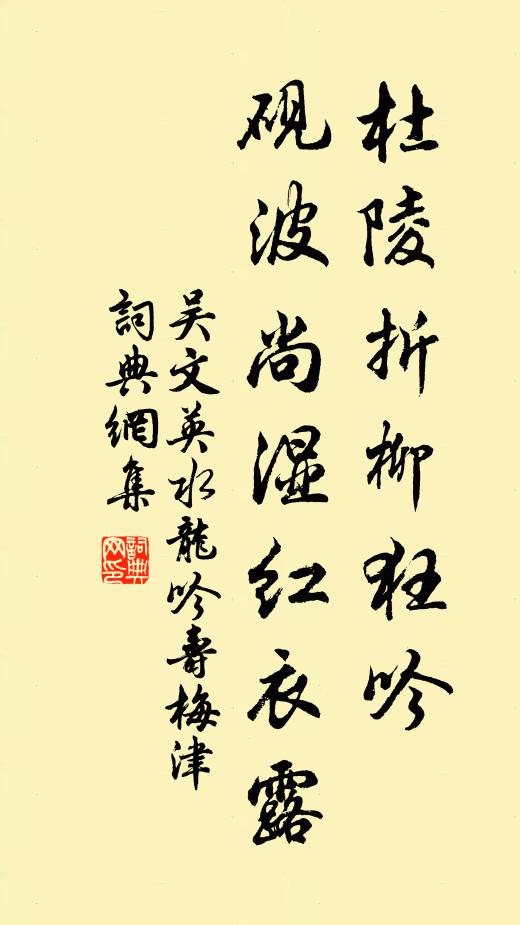 杜陵折柳狂吟
硯波尚湿紅衣露
吴文英水龍吟壽梅津
詞典網集
詞典网印